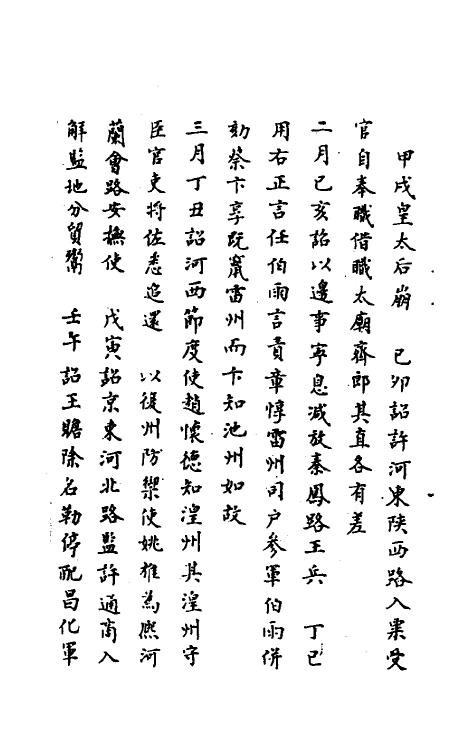 甲戌皇太后崩　己夘詔許河東陕西路入粟受
官自奉職借職太廟齊郎其直各有差
二月己亥詔以邊事寧息减放秦鳳路王兵　丁巳
用右正言任伯雨言責章惇雷州司户参軍伯雨併
劾蔡卞享既竄雷州而卞知池州如故
三月丁丑詔河西節度使趙懷德知湟州其湟州守
臣官吏将佐悉追還　以復州防禦使姚雄為熈河
蘭會路安撫使　戊寅詔京東河北路監許通商入
解監地分貿鬻　壬午詔王贍除名勒停配昌化軍